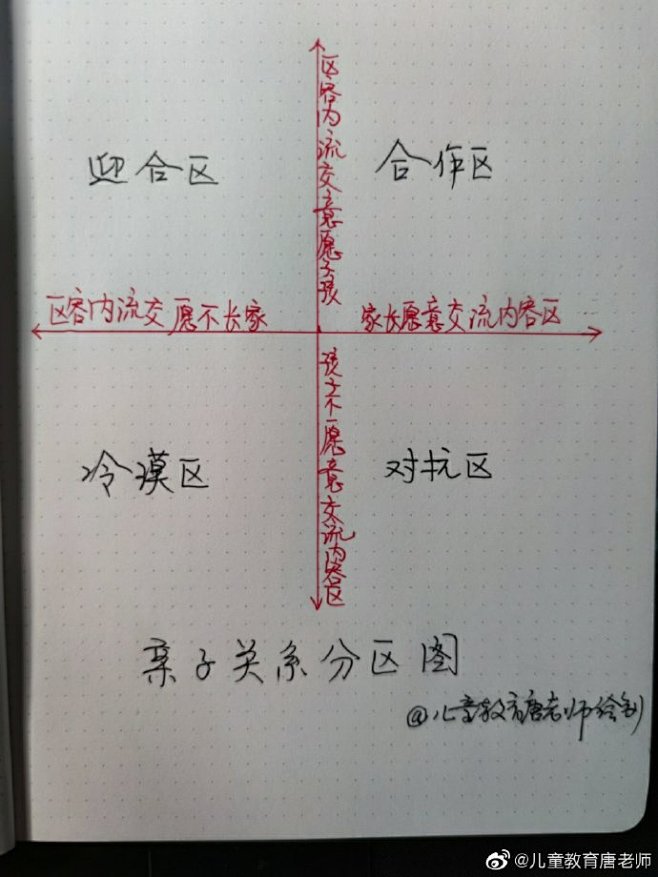 区容内流交意愿子孩
迎合区
合作区
区容内流交愿不长家
家长愿意交流内容区
孩子不愿意交流内容区
冷漠区
对抗区
亲子关系分区图
@儿童教育唐老师绘制
@儿童教育唐老师